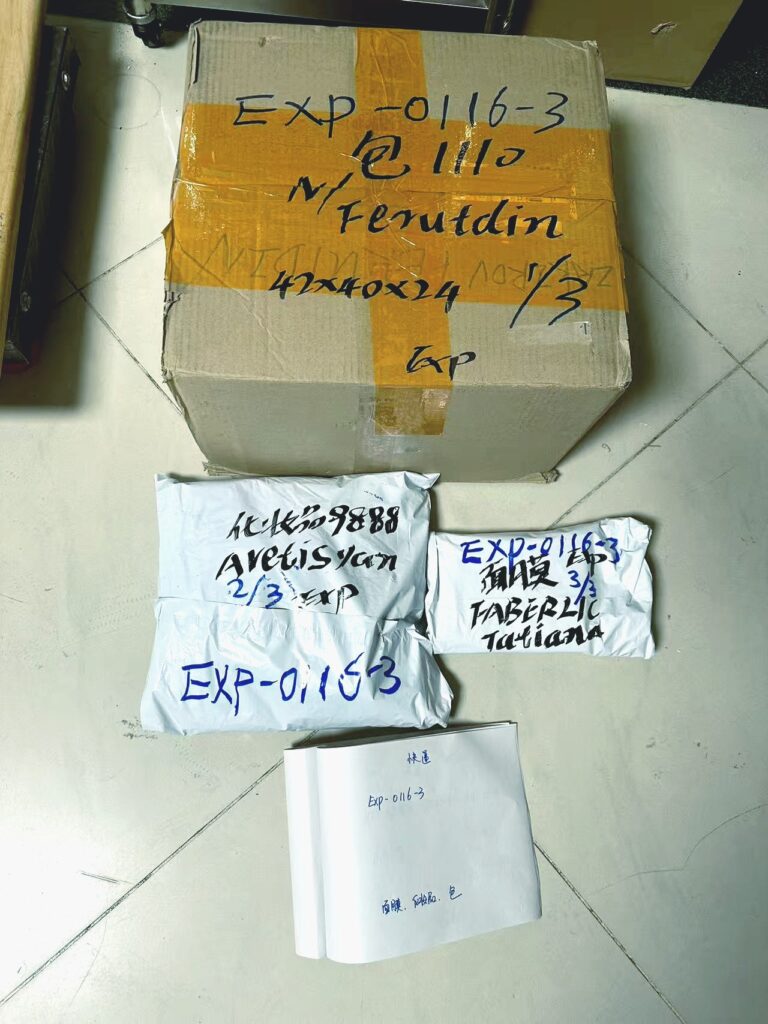 EXP-0116-3
包1110
N/
Ferutdin
42x40x24 1/3
Exp
化妆品9888
Avetisyan
2/3 EXP
EXP-0116-3
EXP-0116-3
面膜 Exp
3/3
FABERLIC
Tatiana
快递
Exp-0116-3
面膜、化妆品、包